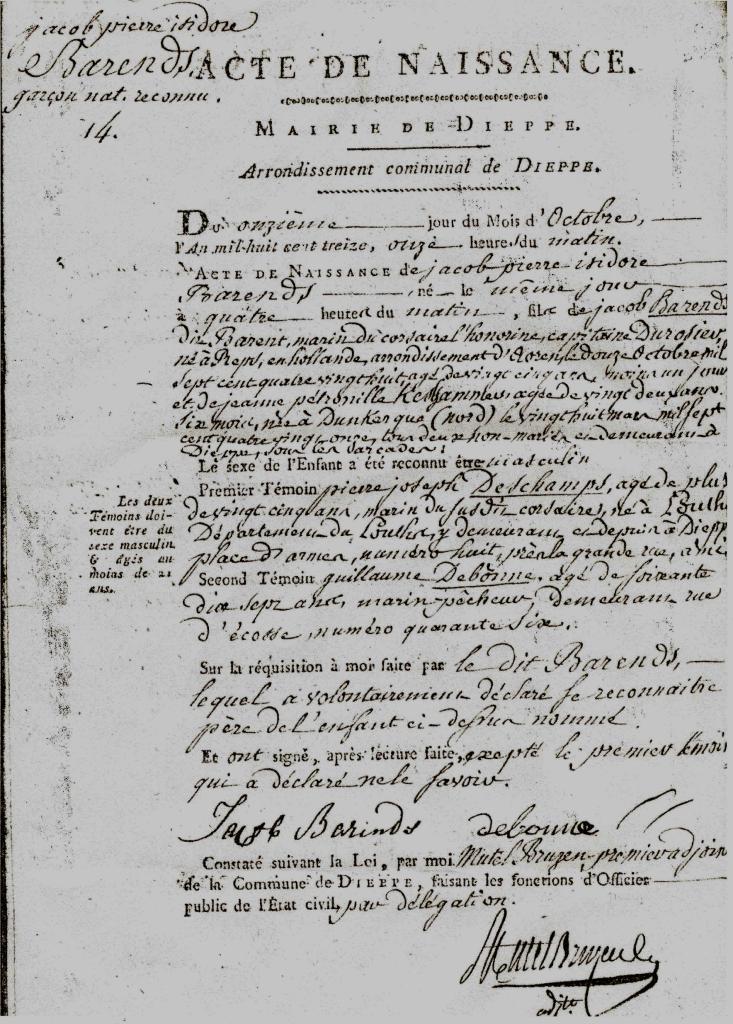 jacob pierre isidore
Barends
garçon nat. reconnu.
14.
ACTE DE NAISSANCE.
MAIRIE DE DIEPPE.
Arrondissement communal de DIEPPE.
Du onzième jour du Mois d'Octobre,
l'An mil-huit cent treize, onze heures du matin.
ACTE DE NAISSANCE de jacob pierre isidore
Barends né le même jour
à quatre heures du matin, fils de jacob Barends
dit Barent, marin du corsaire l'honorine, capitaine Durosier,
né à en hollande, arrondissement d' le douze Octobre mil
sept cent quatre vingt huit, agé de vingt cinq ans, moins un jour
et de jeanne pétronille agée de vingt deux ans
six mois, née à Dunkerque (nord) le vingt huit mars mil sept
cent quatre vingt onze, tous deux non-mariés et demeurant à
Dieppe, sous les arcades.
Le sexe de l'Enfant a été reconnu être masculin
Premier Témoin pierre joseph Deschamps, agé de plus
de vingt cinq ans, marin du susdit corsaire, né à
Département du y demeurant et depuis à Diepp
place d'armes, numéro huit, près la grande rue,
Second Témoin guillaume Debonne, agé de soixante
dix sept ans, marin pêcheur, demeurant rue
d'écosse, numéro quarante six.
Les deux
Témoins doi-
vent être du
sexe masculin
& âgés au
moins de 21
ans.
Sur la réquisition à moi faite par le dit Barends,
lequel a volontairement déclaré se reconnaitre
père de l'enfant ci-dessus nommé.
Et ont signé, après lecture faite, excepté le premier témoin
qui a déclaré ne le savoir.
Jacob Barinds debonne
Constaté suivant la Loi, par moi Mutel Bruzen premier adjoin
de la Commune de DIEPPE, faisant les fonctions d'Officier
public de l'État civil, par délégation.